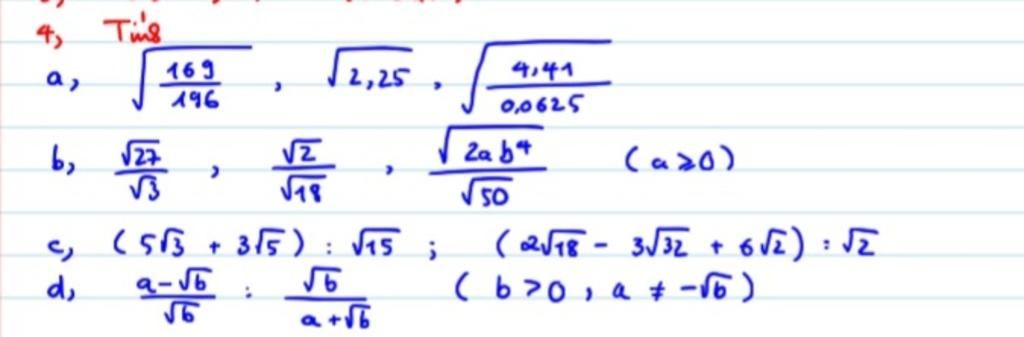 4, Tính
a, √(169/196) , √2,25 , √(4,41/0,0625)
b, √27/√3 , √2/√18 , √(2ab⁴)/√50 (a ≥ 0)
c, (5√3 + 3√5) : √15 ; (2√18 - 3√32 + 6√2) : √2
d, (a-√b)/√b : √b/(a+√b) (b > 0, a ≠ -√b)